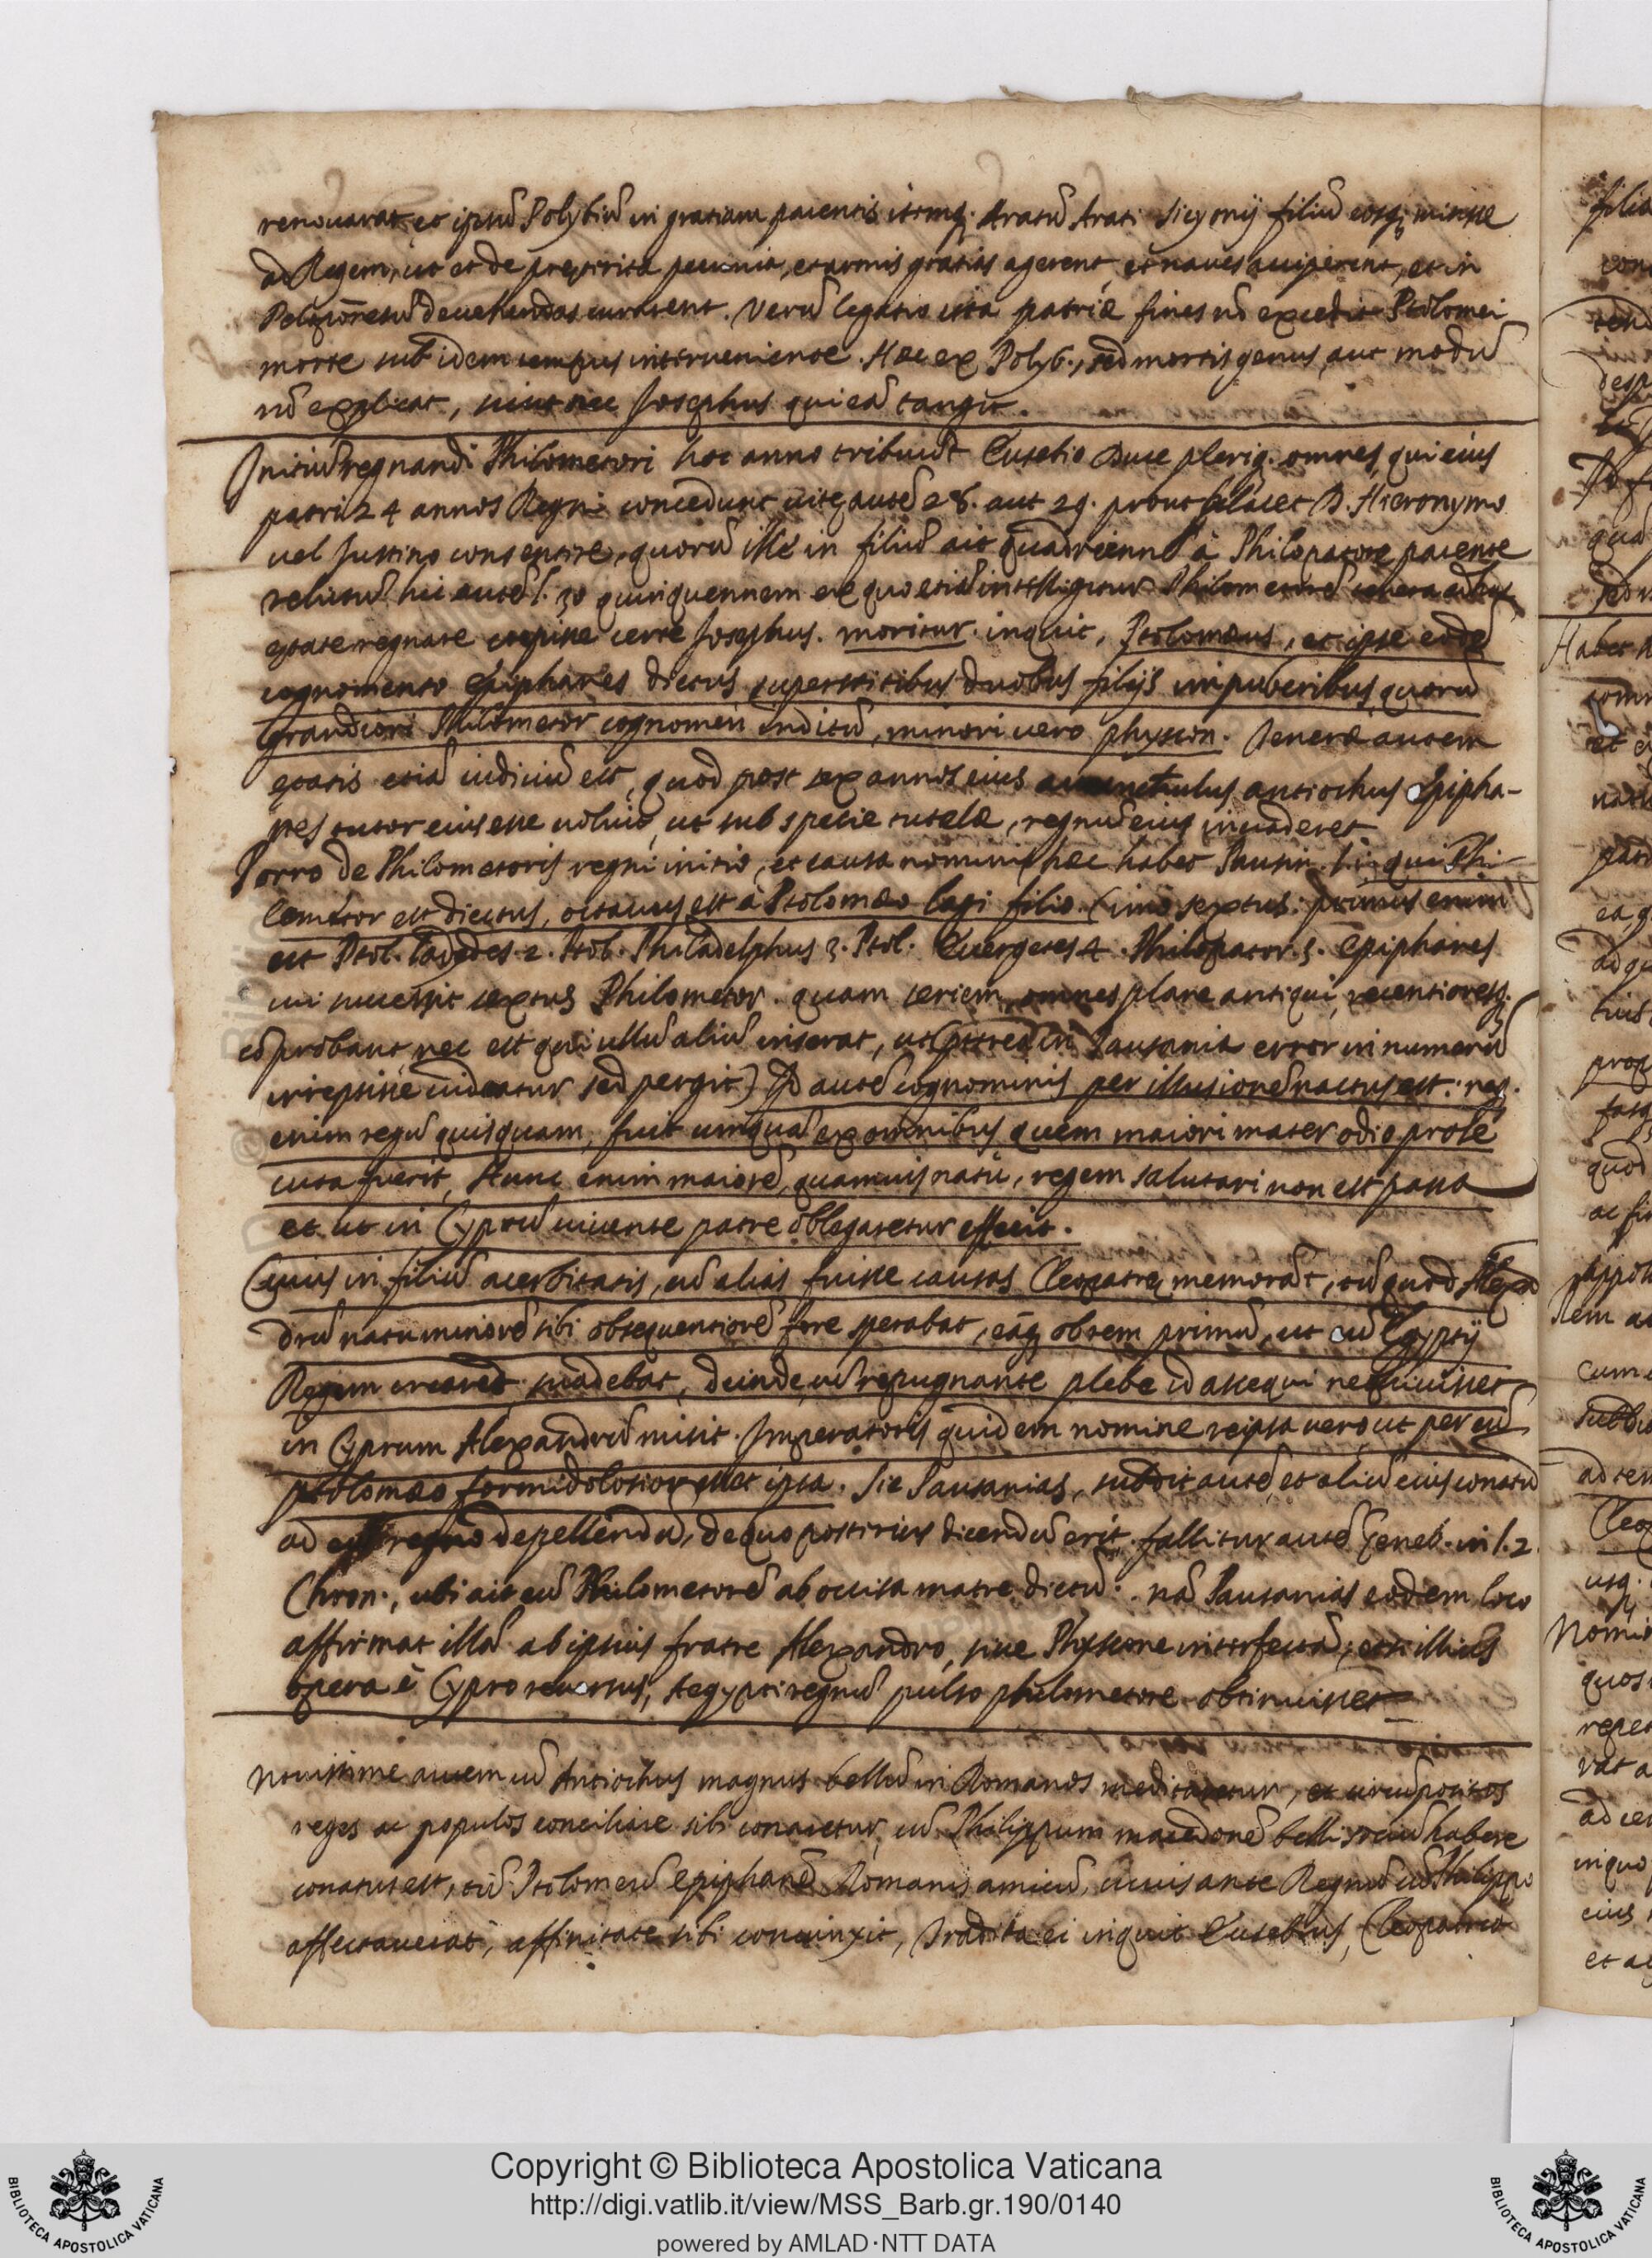 renouarat, et ipsũ Polybiũ in gratiam parentis itemq. Aratũ Arati Sicyonij filiũ eosq; misisse
ad Regem, ut et de preterita pecunia, et armis gratias agerent, et naues acciperent, et in
Peloponesũ deuehendas curarent. Verũ legatio ista patriæ fines nõ excedit Ptolomei
morte sub idem tempus interueniente. Hæc ex Polyb., sed mortis genus, aut modũ
nõ explicat, sicut nec Josephus qui eã tangit.
Initiũ regnandi Philometori hoc anno tribuũt Eusebio Duce pleriq. omnes, qui eius
patri 24 annos Regni concedunt uitę autẽ 28. aut 29. prout placet D. Hieronymo
uel Justino consentire, quorũ ille in filiũ ait quadriennẽ à Philopatore parente
relictũ hic autẽ l. 30 quinquennem ex quo etiã intelligitur Philometorẽ tenera
ętate regnare cœpisse certe Josephus. moritur inquit, Ptolomæus, et ipse eodẽ
cognomento Epiphanes dictus superstitibus duobus filijs impuberibus, quorũ
Grandiori Philometor cognomen inditũ, minori uero physcon. Teneræ autem
ętatis etiã iudiciũ est, quod post sex annos eius auunculus antiochus Epipha-
nes tutor eius esse uoluit, ut sub specie tutelæ, regnũ eius inuaderet
Porro de Philometoris regni initio, et causa nominis hæc habet Pausan. Is qui Phi-
lometor est dictus, octauus est à Ptolomæo lagi filio. (imo sextus: primus enim
est Ptol. lagides. 2. Ptol. Philadelphus 3. Ptol. Euergetes 4. Philopator. 5. Epiphanes
cui successit sextus Philometor. quam seriem omnes plane antiqui, recentioresq.
cõprobant, nec est qui ullũ aliũ inserat, ut in Pausania error in numerũ
irrepsisse uideatur sed pergit) Id autẽ cognominis per illusionẽ nactus est: neq.
enim regũ quisquam, fuit umquã ex omnibus quem maiori mater odio prose
cuta fuerit, Hunc enim maiorẽ, quamuis natu, regem salutari non est passa
et ut in Cyprũ uiuente patre oblegaretur effecit.
Cuius in filiũ acerbitatis, cũ alias fuisse causas Cleopatrę memorãt, tũ quod Alexã
drũ natu minorẽ sibi obsequentiorẽ fore sperabat, eãq; obrem primũ, ut eũ Egyptij
Regem crearẽt, suadebat, deinde, cũ repugnante plebe id assequi nequiuisset
in Cyprum Alexandrũ misit. Imperatoris quidem nomine reipsa uero, ut per eũ
ptolomæo formidolosior esset ipsa. Sic Pausanias, subdit autẽ, et aliũ eius conatũ
ad regno depellendũ, de quo posterius dicendũ erit. fallitur autẽ Geneb. in l. 2.
Chron., ubi ait eũ Philometorẽ ab occisa matre dictũ. nã Pausanias eodem loco
affirmat illã ab ipsius fratre Alexandro, siue Physcone interfectã, etsi illius
opera è Cypro reuersus, Aegypti regnũ pulso philometore obtinuisset
Nouissime autem cũ Antiochus magnus bellũ in Romanos meditaretur, et circũpositos
reges ac populos conciliare sibi conaretur, cũ Philippum macedonẽ belli sociũ habere
conatus est, tũ Ptolomeũ Epiphanẽ Romanis amicũ, cuius ante Regnũ cũ Philippo
affectauerat, affinitate sibi conuinxit, Tradita ei inquit Eusebius, Cleopatra
Copyright © Biblioteca Apostolica Vaticana
http://digi.vatlib.it/view/MSS_Barb.gr.190/0140
powered by AMLAD·NTT DATA
BIBLIOTECA APOSTOLICA VATICANA
BIBLIOTECA APOSTOLICA VATICANA